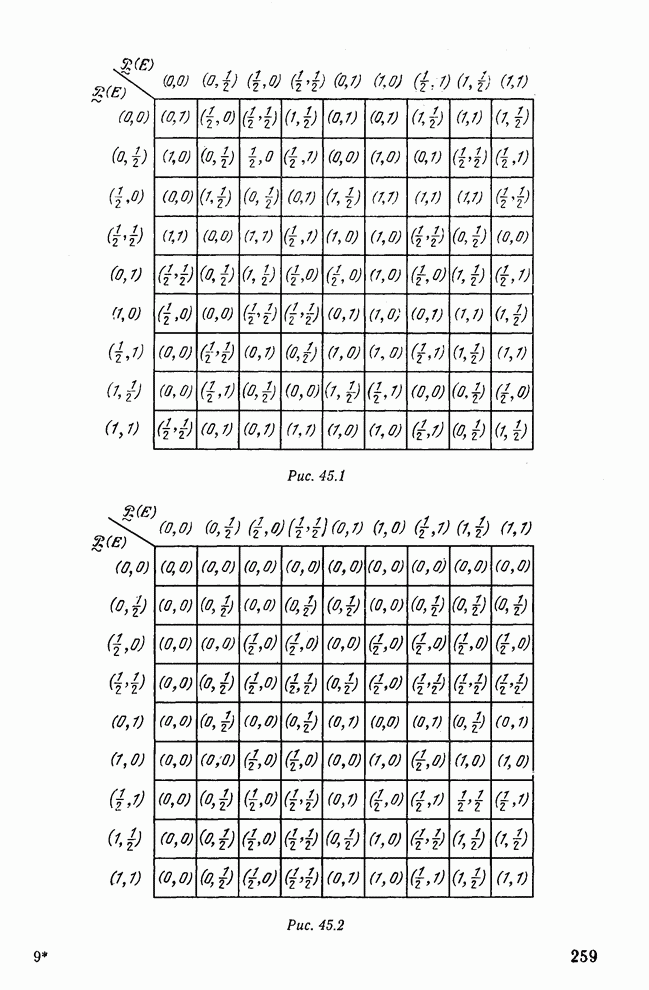 𝒫(E)
𝒫(E) (0,0) (0,1/2) (1/2,0) (1/2,1/2) (0,1) (1,0) (1/2,1) (1,1/2) (1,1)
(0,0) (0,1) (1/2,0) (1/2,1/2) (1,1/2) (0,1) (0,1) (1,1/2) (1,1) (1,1/2)
(0,1/2) (1,0) (0,1/2) 1/2,0 (1/2,1) (0,0) (1,0) (0,1) (1/2,1/2) (1/2,1)
(1/2,0) (0,0) (1,1/2) (0,1/2) (0,1) (1,1/2) (1,1) (1,1) (1,1) (1/2,1/2)
(1/2,1/2) (1,1) (0,0) (1,1) (1/2,1) (1,0) (1,0) (1/2,1/2) (0,1/2) (0,0)
(0,1) (1/2,1/2) (0,1/2) (1,1/2) (1/2,0) (1/2,0) (1,0) (1/2,0) (1,1/2) (1/2,1)
(1,0) (1/2,0) (0,0) (1/2,1/2) (1/2,1/2) (0,1) (1,0; (0,1) (1,1) (1,1/2)
(1/2,1) (0,0) (1/2,1/2) (0,1) (0,1/2) (1,0) (1,0) (1/2,1) (1,1/2) (1,1)
(1,1/2) (0,0) (1/2,1) (0,1/2) (0,0) (1,1/2) (1/2,1) (0,0) (0.1/2) (1/2,0)
(1,1) (1/2,1/2) (0,1) (0,1) (1,1) (1,0) (1,0) (1/2,1) (0,1/2) (1,1/2)
Рис. 45.1
𝒫(E)
𝒫(E) (0,0) (0,1/2) (1/2,0) (1/2,1/2) (0,1) (1,0) (1/2,1) (1,1/2) (1,1)
(0,0) (0,0) (0,0) (0,0) (0,0) (0,0) (0,0) (0,0) (0,0) (0,0)
(0,1/2) (0,0) (0,1/2) (0,0) (0,1/2) (0,1/2) (0,0) (0,1/2) (0,1/2) (0,1/2)
(1/2,0) (0,0) (0,0) (1/2,0) (1/2,0) (0,0) (1/2,0) (1/2,0) (1/2,0) (1/2,0)
(1/2,1/2) (0,0) (0,1/2) (1/2,0) (1/2,1/2) (0,1/2) (1/2,0) (1/2,1/2) (1/2,1/2) (1/2,1/2)
(0,1) (0,0) (0,1/2) (0,0) (0,1/2) (0,1) (0,0) (0,1) (0,1/2) (0,1)
(1,0) (0,0) (0,0) (1/2,0) (1/2,0) (0,0) (1,0) (1/2,0) (1,0) (1,0)
(1/2,1) (0,0) (0,1/2) (1/2,0) (1/2,1/2) (0,1) (1/2,0) (1/2,1) 1/2,1/2 (1/2,1)
(1,1/2) (0,0) (0,1/2) (1/2,0) (1/2,1/2) (0,1/2) (1,0) (1/2,1/2) (1,1/2) (1,1/2)
(1,1) (0,0) (0,1/2) (1/2,0) (1/2,1/2) (0,1) (1,0) (1/2,1) (1,1/2) (1,1)
Рис. 45.2
9* 259